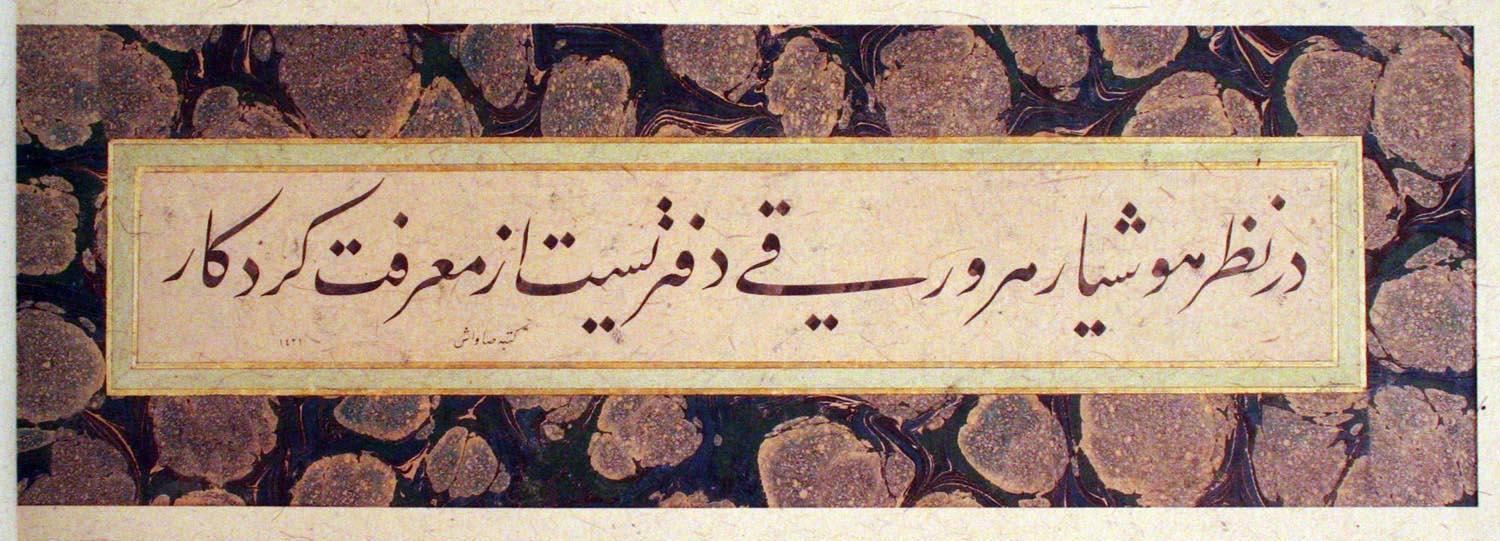 در نظر هوشیار هر ورقی دفتریست از معرفت کردکار
کتبه صاواش
١٤٢١